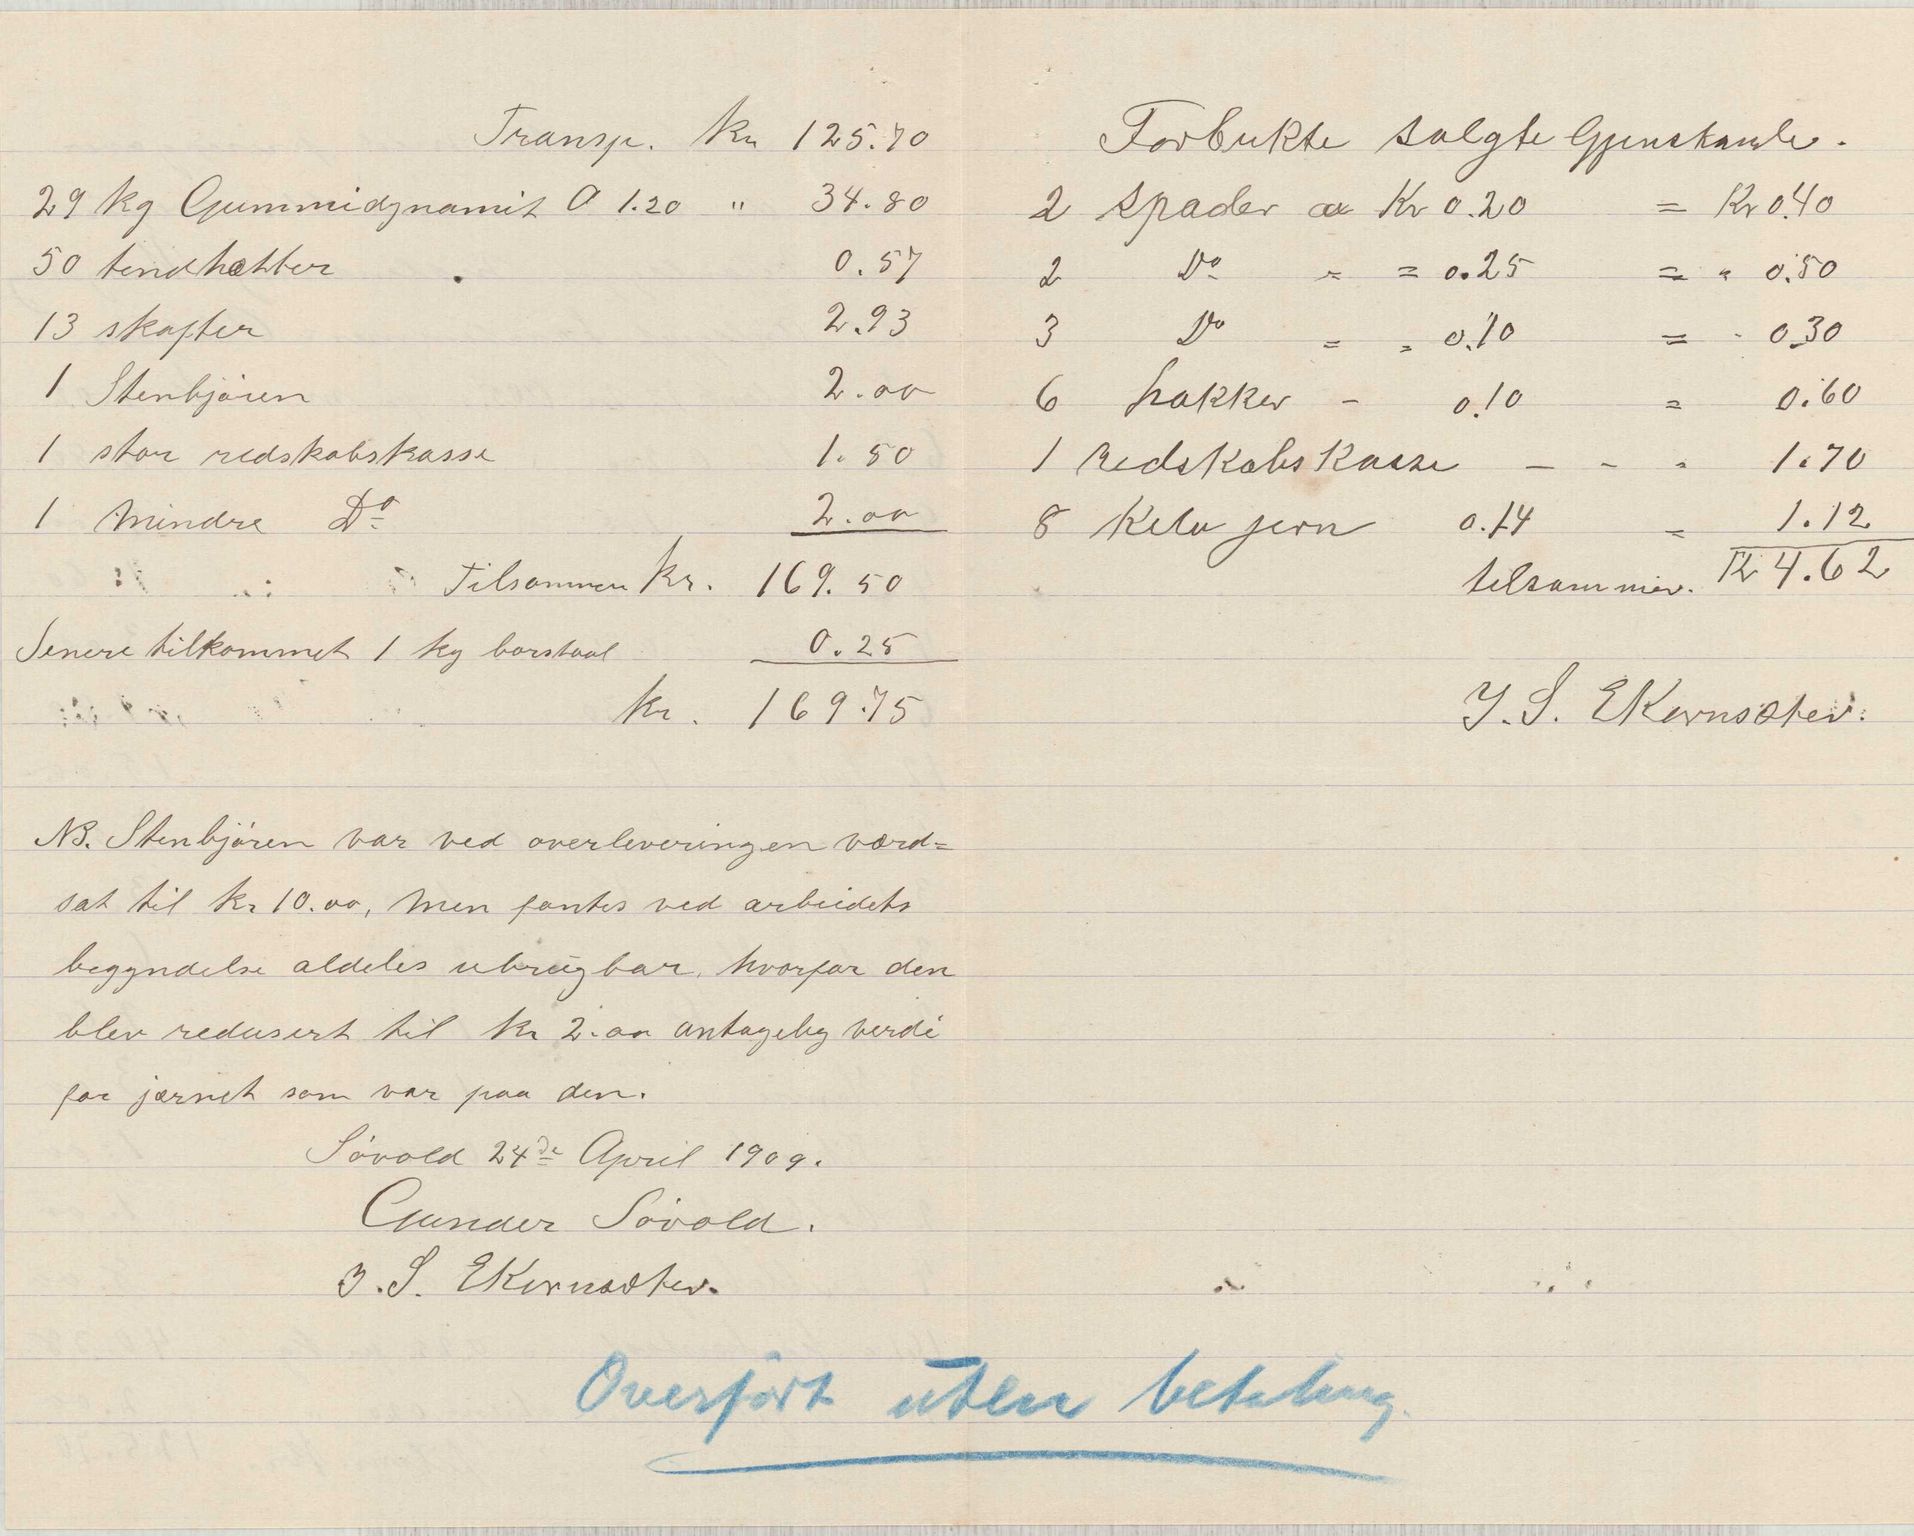 Transp. Kr 125.70
29 kg Gummidynamit á 1.20 " 34.80
50 tendhætter 0.57
13 skafter 2.93
1 Stenbjøren 2.00
1 stor redskabskasse 1.50
1 Mindre Do 2.00
Tilsammen Kr. 169.50
Senere tilkommet 1 kg borstaal 0.25
Kr. 169.75
NB. Stenbjøren var ved overleveringen værd=
sat til kr 10.00, men fantes ved arbeidets
begyndelse aldeles ubrugbar, hvorfor den
blev redusert til kr 2.00 antagelig verdi
for jærnet som var paa den.
Søvold 24de April 1909.
Gunder Søvold.
J. S. Ekernsæter.
Forbukte solgte Gjenstande.
2 Spader a Kr 0.20 = Kr 0.40
2 Do " = 0.25 = " 0.50
3 Do = = 0.10 = - 0.30
6 hakker - 0.10 = 0.60
1 Redskabskasse - - " 1.70
8 Kilo jern 0.14 = 1.12
tilsammen. Kr 4.62
J. S. Ekernsæter.
Overført uten betaling.